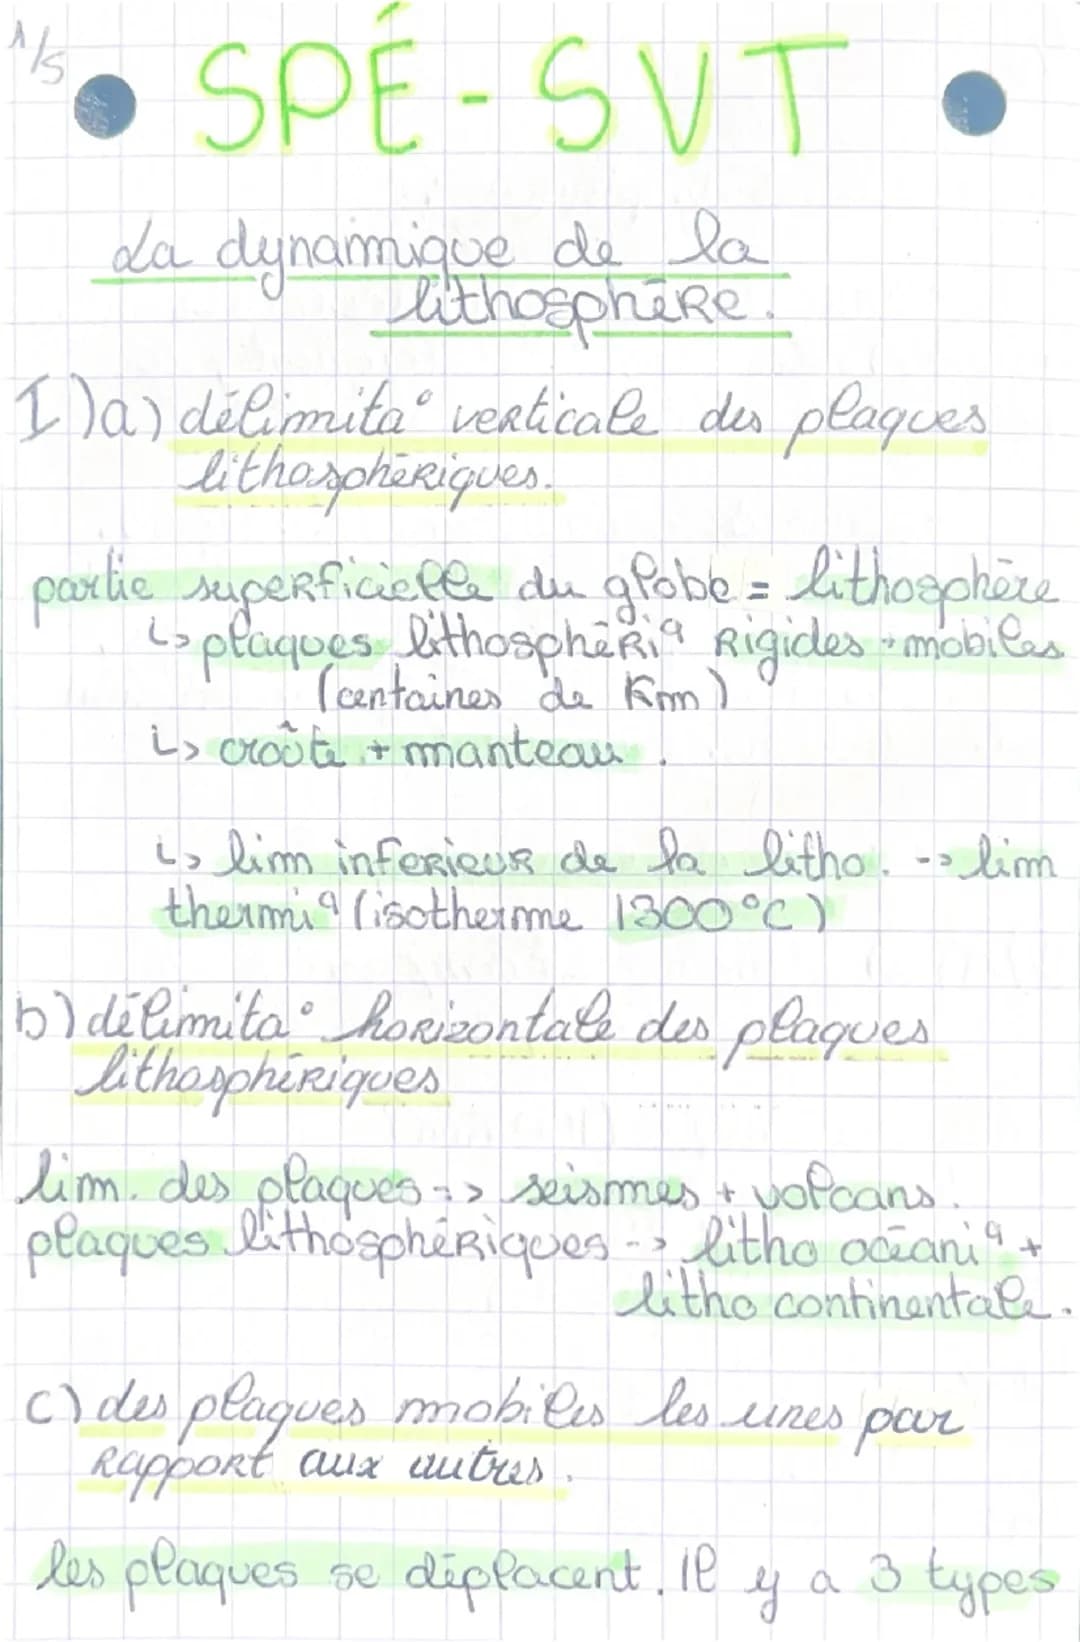 1/5
SPÉ-SVT
La dynamique de la
lithosphère.
I)a) délimita° verticale des plaques
lithosphériques.
partie superficielle du globe = lithosphère
↳ plaques lithosphériq rigides + mobiles
(centaines de Km)
↳ croûte + manteau.
↳ lim inferieur de la litho. --> lim
thermiq (isotherme 1300°C)
b) délimita° horizontale des plaques
lithosphériques
lim. des plaques --> seismes + volcans.
plaques lithosphériques --> litho océaniq +
litho continentale.
c) des plaques mobiles les unes par
rapport aux autres.
les plaques se déplacent. Il y a 3 types